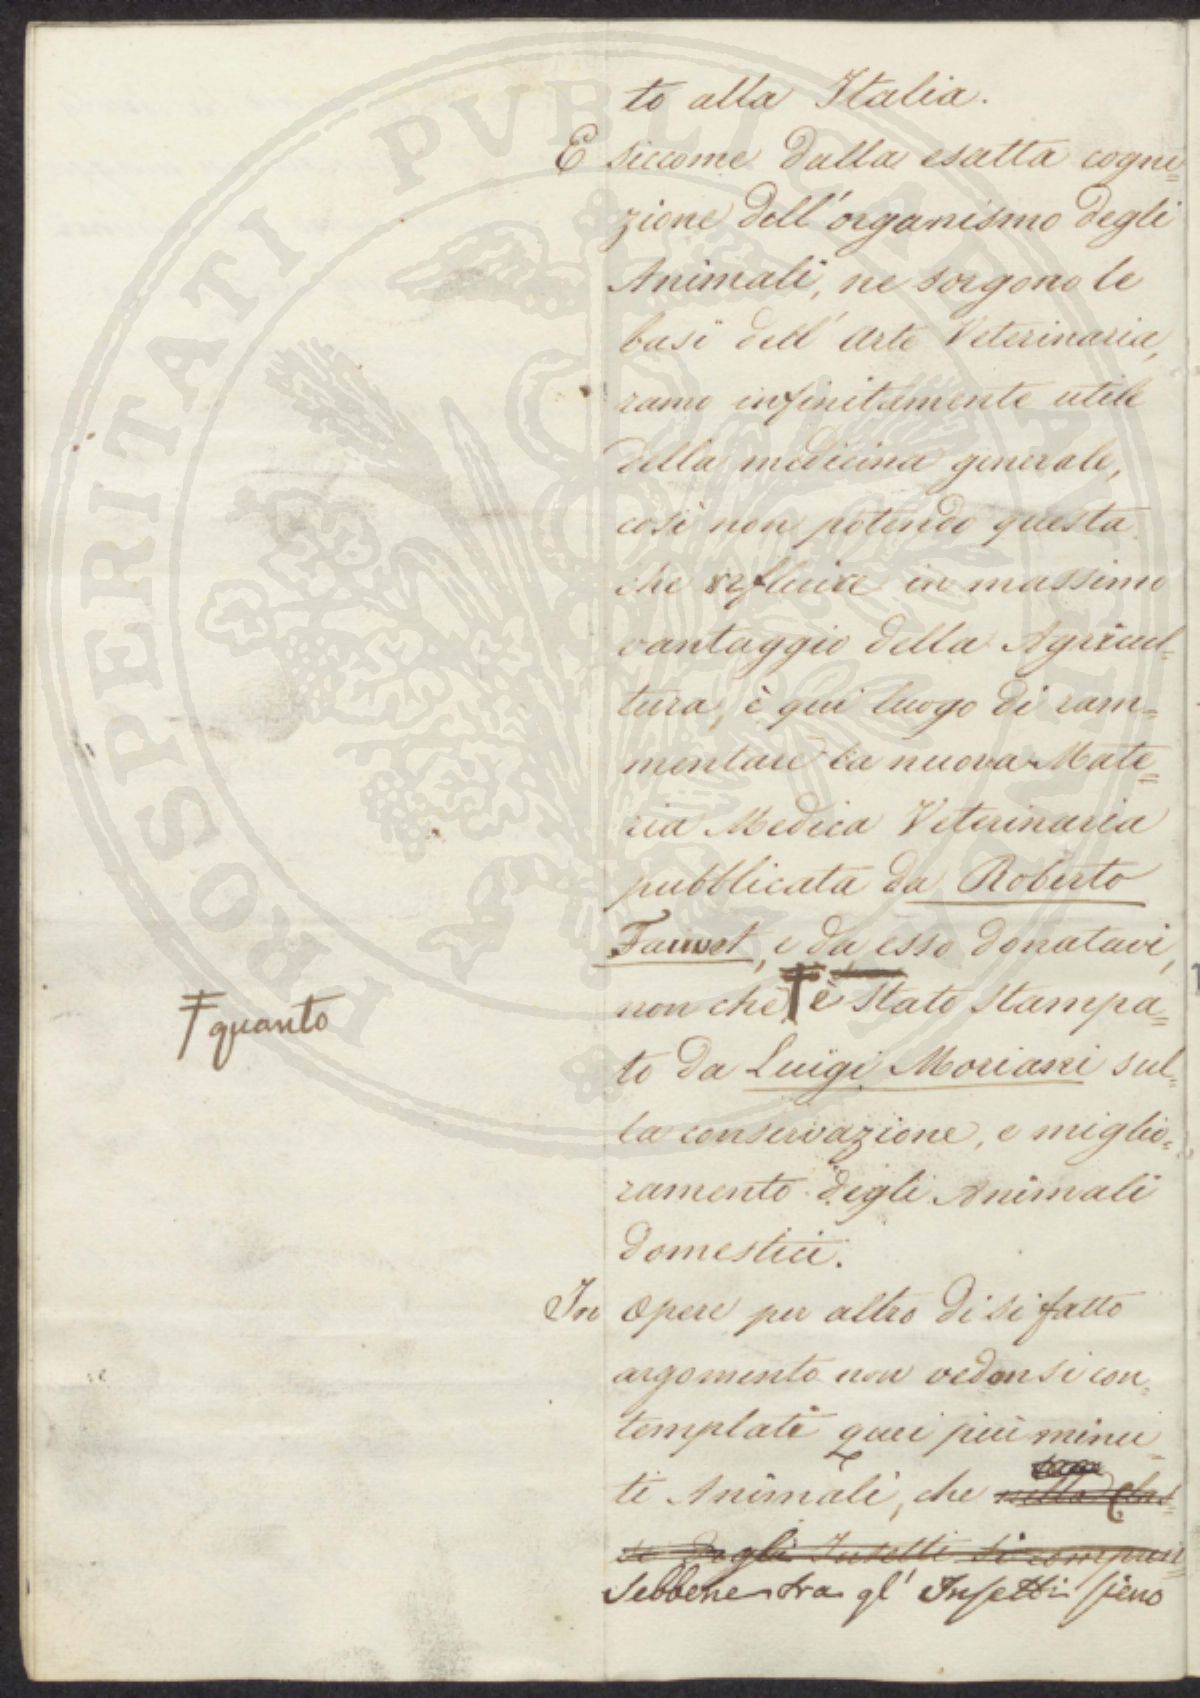 to alla Italia.
E siccome dalla esatta cogni=
zione dell'organismo degli
Animali, ne sorgono le
basi dell' Arte Veterinaria,
ramo infinitamente utile
della medicina generale,
così non potendo questa
che refluire in massimo
vantaggio della Agricul=
tura, è qui luogo di ram=
mentare la nuova Mate=
ria Medica Veterinaria
pubblicata da Roberto
Fauvet, e da esso donatavi,
non che Ŧ è stato stampa=
Ŧ quanto
to da Luigi Moriani sul=
la conservazione, e miglio=
ramento degli Animali
domestici.
In Opere per altro di si fatto
argomento non vedonsi con=
templati quei più minu=
ti Animali, che nella Clas=
se degli Insetti si compren
Sebbene tra gl' Insetti sieno
PROSPERITATI PVBLICAE